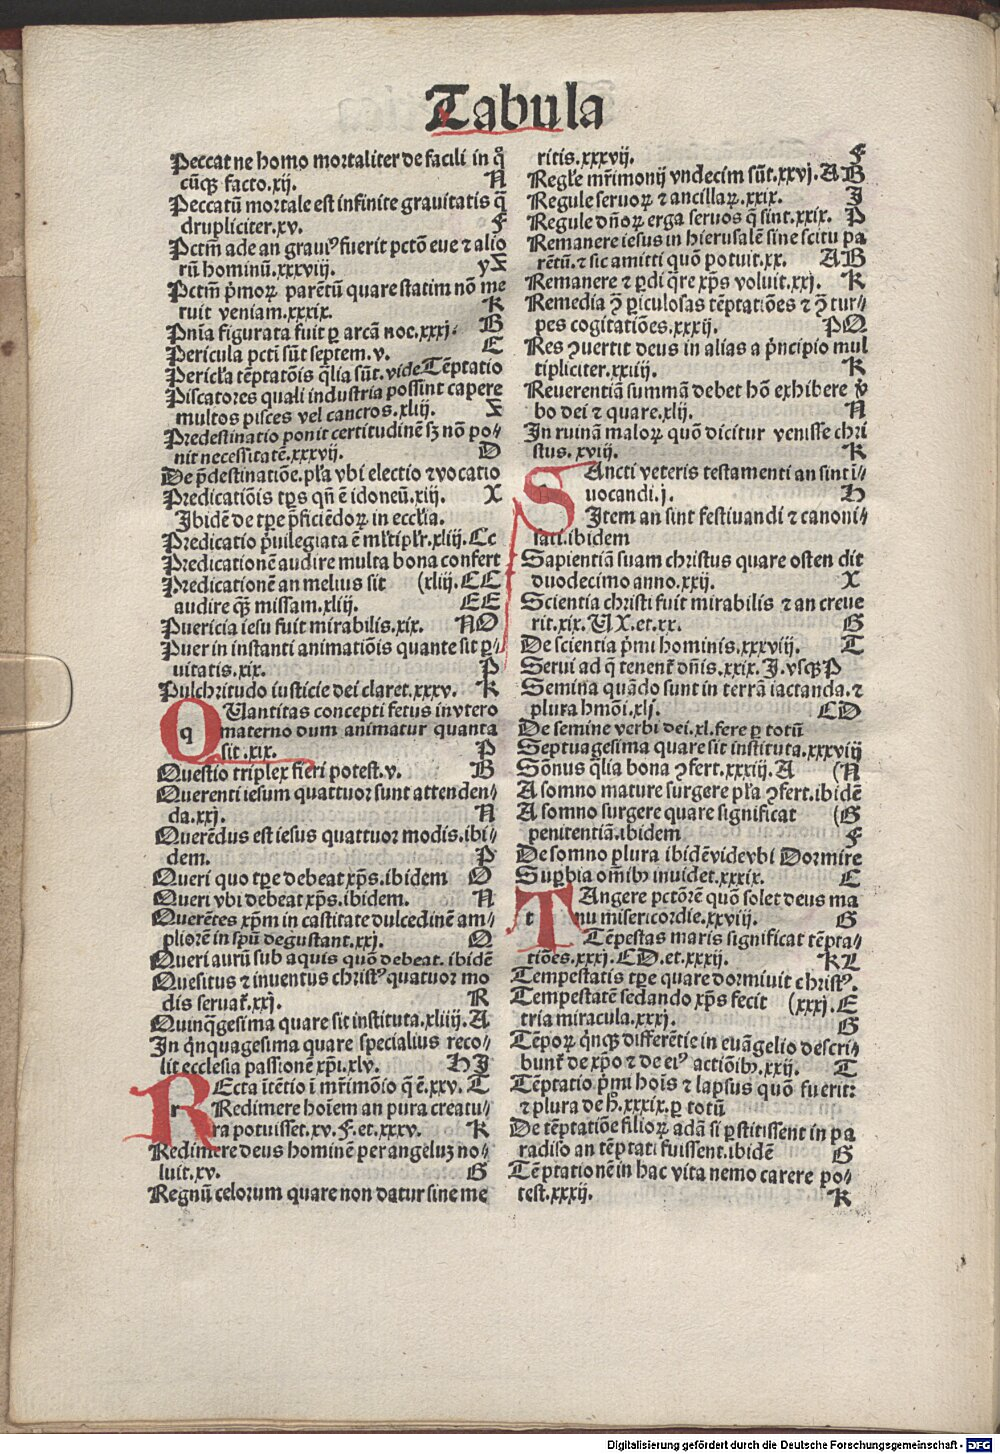 Tabula
Peccat ne homo mortaliter de facili in qͦ
cūqꝫ facto.xij. N
Peccatū mortale est infinite grauitatis q̄
drupliciter.xv. F
Pctm̄ ade an grauiꝰ fuerit pctō eue ⁊ alio
rū hominū.xxxviij. yZ
Pctm̄ p̍moꝝ parētū quare statim nō me
ruit veniam.xxxix. K
Pnīa figurata fuit ꝑ arcā noe.xxxj. B
Pericula pcti sūt septem.v. E
Pericl̄a tēptatōis q̄lia sūt.vide Tēptatio
Piscatores quali industria possint capere
multos pisces vel cancros.xlij. Z
Predestinatio ponit certitudinē sꝫ nō po⸗
nit necessitatē.xxxvij. D
De p̄destinatiōe.pl̄a vbi electio ⁊ vocatio
Predicatiōis tp̄s qn̄ ē idoneū.xij. X
Ibidē de tpe p̄ficiēdoꝝ in eccl̄ia.
Predicatio p̍uilegiata ē ml̄tipl̄r.xliij.Cc
Predicationē audire multa bona confert
Predicationē an melius sit (xliij.CC
audire qꝫ missam.xliij. EE
Puericia iesu fuit mirabilis.xix. NO
Puer in instanti animatiōis quante sit ꝑ⸗
uitatis.xix. P
Pulchritudo iusticie dei claret.xxxv. K
QUantitas concepti fetus in vtero
q materno dum animatur quanta
sit.xix. P
Questio triplex fieri potest.v. B
Querenti iesum quattuor sunt attenden⸗
da.xxj. N
Querēdus est iesus quattuor modis.ibi⸗
dem. P
Queri quo tpe debeat xp̄s.ibidem O
Queri vbi debeat xp̄s.ibidem. N
Querētes xp̄m in castitate dulcedinē am⸗
pliorē in spū degustant.xxj. Q
Queri aurū sub aquis quō debeat.ibidē
Quesitus ⁊ inuentus christꝰ quatuor mo
dis seruat̄.xxj. R
Quinq̄gesima quare sit instituta.xliiij.A
In qͥnquagesima quare specialius reco⸗
lit ecclesia passionē xp̄i.xlv. HI
REcta ītētio ī mr̄imōio q̄ ē.xxv. T
r Redimere hoīem an pura creatu⸗
ra potuisset.xv.F.et.xxxv. K
Redimere deus hominē per angelū no⸗
luit.xv. G
Regnū celorum quare non datur sine me
ritis.xxxvij. F
Regl̄e mr̄imonij vndecim sūt.xxvj.AB
Regule seruoꝝ ⁊ ancillaꝝ.xxix. I
Regule dn̄oꝝ erga seruos q̄ sint.xxix. P
Remanere iesus in hierusalē sine scitu pa
rētū.⁊ sic amitti quō potuit.xx. AB
Remanere ⁊ ꝑdi q̄re xp̄s voluit.xxj. K
Remedia ꝯ̄ ꝑiculosas tēptatiōes ⁊ ꝯ̄ tur⸗
pes cogitatiōes.xxxij. PQ
Res ꝯuertit deus in alias a p̍ncipio mul
tipliciter.xxiiij. K
Reuerentiā summā debet hō exhibere v̍
bo dei ⁊ quare.xlij. N
In ruinā maloꝝ quō dicitur venisse chri
stus.xviij. K
SAncti veteris testamenti an sint ī⸗
uocandi.j. H
Item an sint festiuandi ⁊ canoni⸗
sati.ibidem
Sapientiā suam christus quare osten dit
duodecimo anno.xxij. X
Scientia christi fuit mirabilis ⁊ an creue
rit.xix.VX.et.xx. G
De scientia p̍mi hominis.xxxviij. T
Serui ad q̄ tenent̄ dn̄is.xxix.I.vsqꝫ P
Semina quādo sunt in terrā iactanda.⁊
plura hmōi.xlj. CD
De semine verbi dei.xl.fere ꝑ totū
Septuagesima quare sit instituta.xxxviij
Sōnus q̄lia bona ꝯfert.xxxiij.A (N
A somno mature surgere pl̄a ꝯfert.ibidē
A somno surgere quare significat (G
penitentiā.ibidem F
De somno plura ibidē vide vbi Dormire
Suꝑbia om̄ibꝫ inuidet.xxxix. E
TAngere pctōrē quō solet deus ma
t nu misericordie.xxviij. G
Tēpestas maris significat tēpta⸗
tiōes.xxxj.CD.et.xxxij. KL
Tempestatis tpe quare dormiuit christꝰ.
Tempestatē sedando xp̄s fecit (xxxj.E
tria miracula.xxxj. G
Tēpoꝝ qͥnqꝫ differētie in euāgelio descri⸗
bunt̄ de xp̄o ⁊ de eiꝰ actiōibꝫ.xxij. T
Tēptatio p̍mi hoīs ⁊ lapsus quō fuerit:
⁊ plura de h̄.xxxix.ꝑ totū
De tēptatiōe filioꝝ adā si ꝑstitissent in pa
radiso an tēptati fuissent.ibidē G
Tēptationē in hac vita nemo carere po⸗
test.xxxij. K
Digitalisierung gefördert durch die Deutsche Forschungsgemeinschaft - DFG